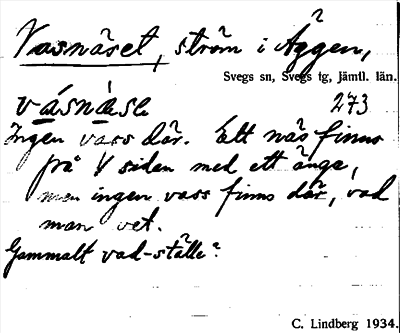 Vasnäset, ström i Äggen,
Svegs sn, Svegs tg, jämtl. län.
vásnàsɛ 273
Ingen vass där. Ett näs finns
på V siden med ett änge,
men ingen vass finns där, vad
man vet.
Gammalt vad-ställe?
C. Lindberg 1934.